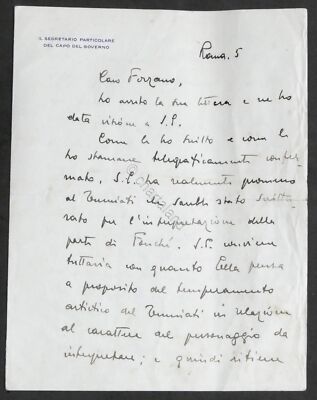 IL SEGRETARIO PARTICOLARE
DEL CAPO DEL GOVERNO
Roma. 5
Caro Forzano,
ho avuto la sua lettera e ne ho
data visione a S.E.
Come le ho scritto e come le
ho stamane telegraficamente confer-
mato, S.E. ha realmente promesso
al Tumiati che sarebbe stato scrittu-
rato per l'interpretazione della
parte di Fouché. S.E. conviene
tuttavia con quanto Ella pensa
a proposito del temperamento
artistico del Tumiati in relazione
al carattere del personaggio da
interpretare; e quindi ritiene